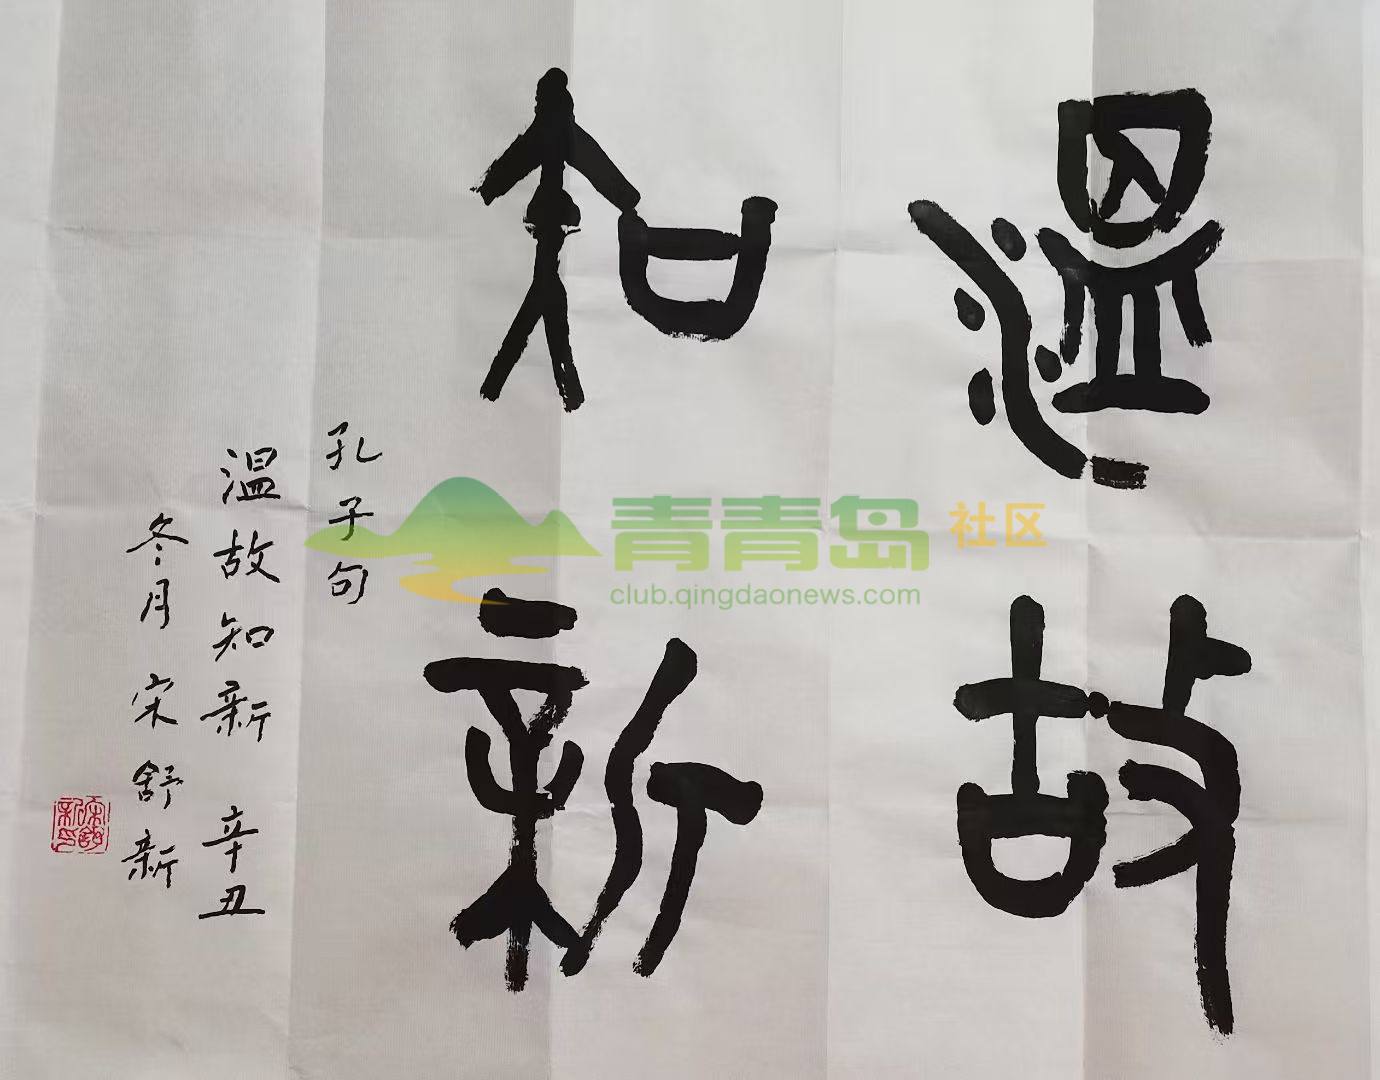 温故
知新
孔子句
温故知新 辛丑
冬月 宋舒新
青青岛 社区
club.qingdaonews.com